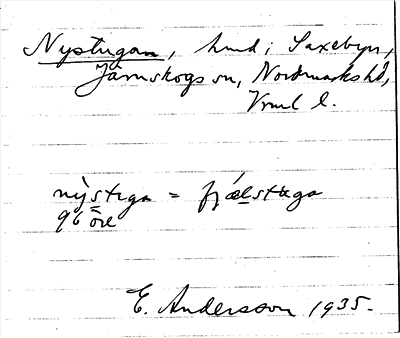 Nystugan, hmd i Saxebyn,
Järnskogs sn, Nordmarks hd,
Vrml l.
nỳstega = fjǽlstæga
96 öre
E. Andersson 1935.